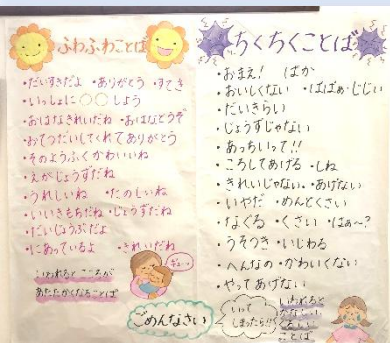 ふわふわことば
・だいすきだよ ・ありがとう ・すてき
・いっしょに○○しよう
・おはなきれいだね ・おはなどうぞ
・おてつだいしてくれてありがとう
・そのようふくかわいいね
・えがじょうずだね
・うれしいね ・たのしいね
・いいきもちだね ・じょうずだね
・だいじょうぶだよ
・にあっているよ ・きれいだね
ぎゅー
いわれると こころが
あたたかくなることば
ちくちくことば
・おまえ! ばか
・おいしくない ・ばばぁ・じじい
・だいきらい
・じょうずじゃない
・あっちいって!!
・ころしてあげる ・しね
・きれいじゃない ・あげない
・いやだ ・めんどくさい
・なぐる ・くさい ・はぁ〜?
・うそつき ・いじわる
・へんなの ・かわいくない
・やってあげない
ごめんなさい
いって
しまったら!!
いわれると
ことば